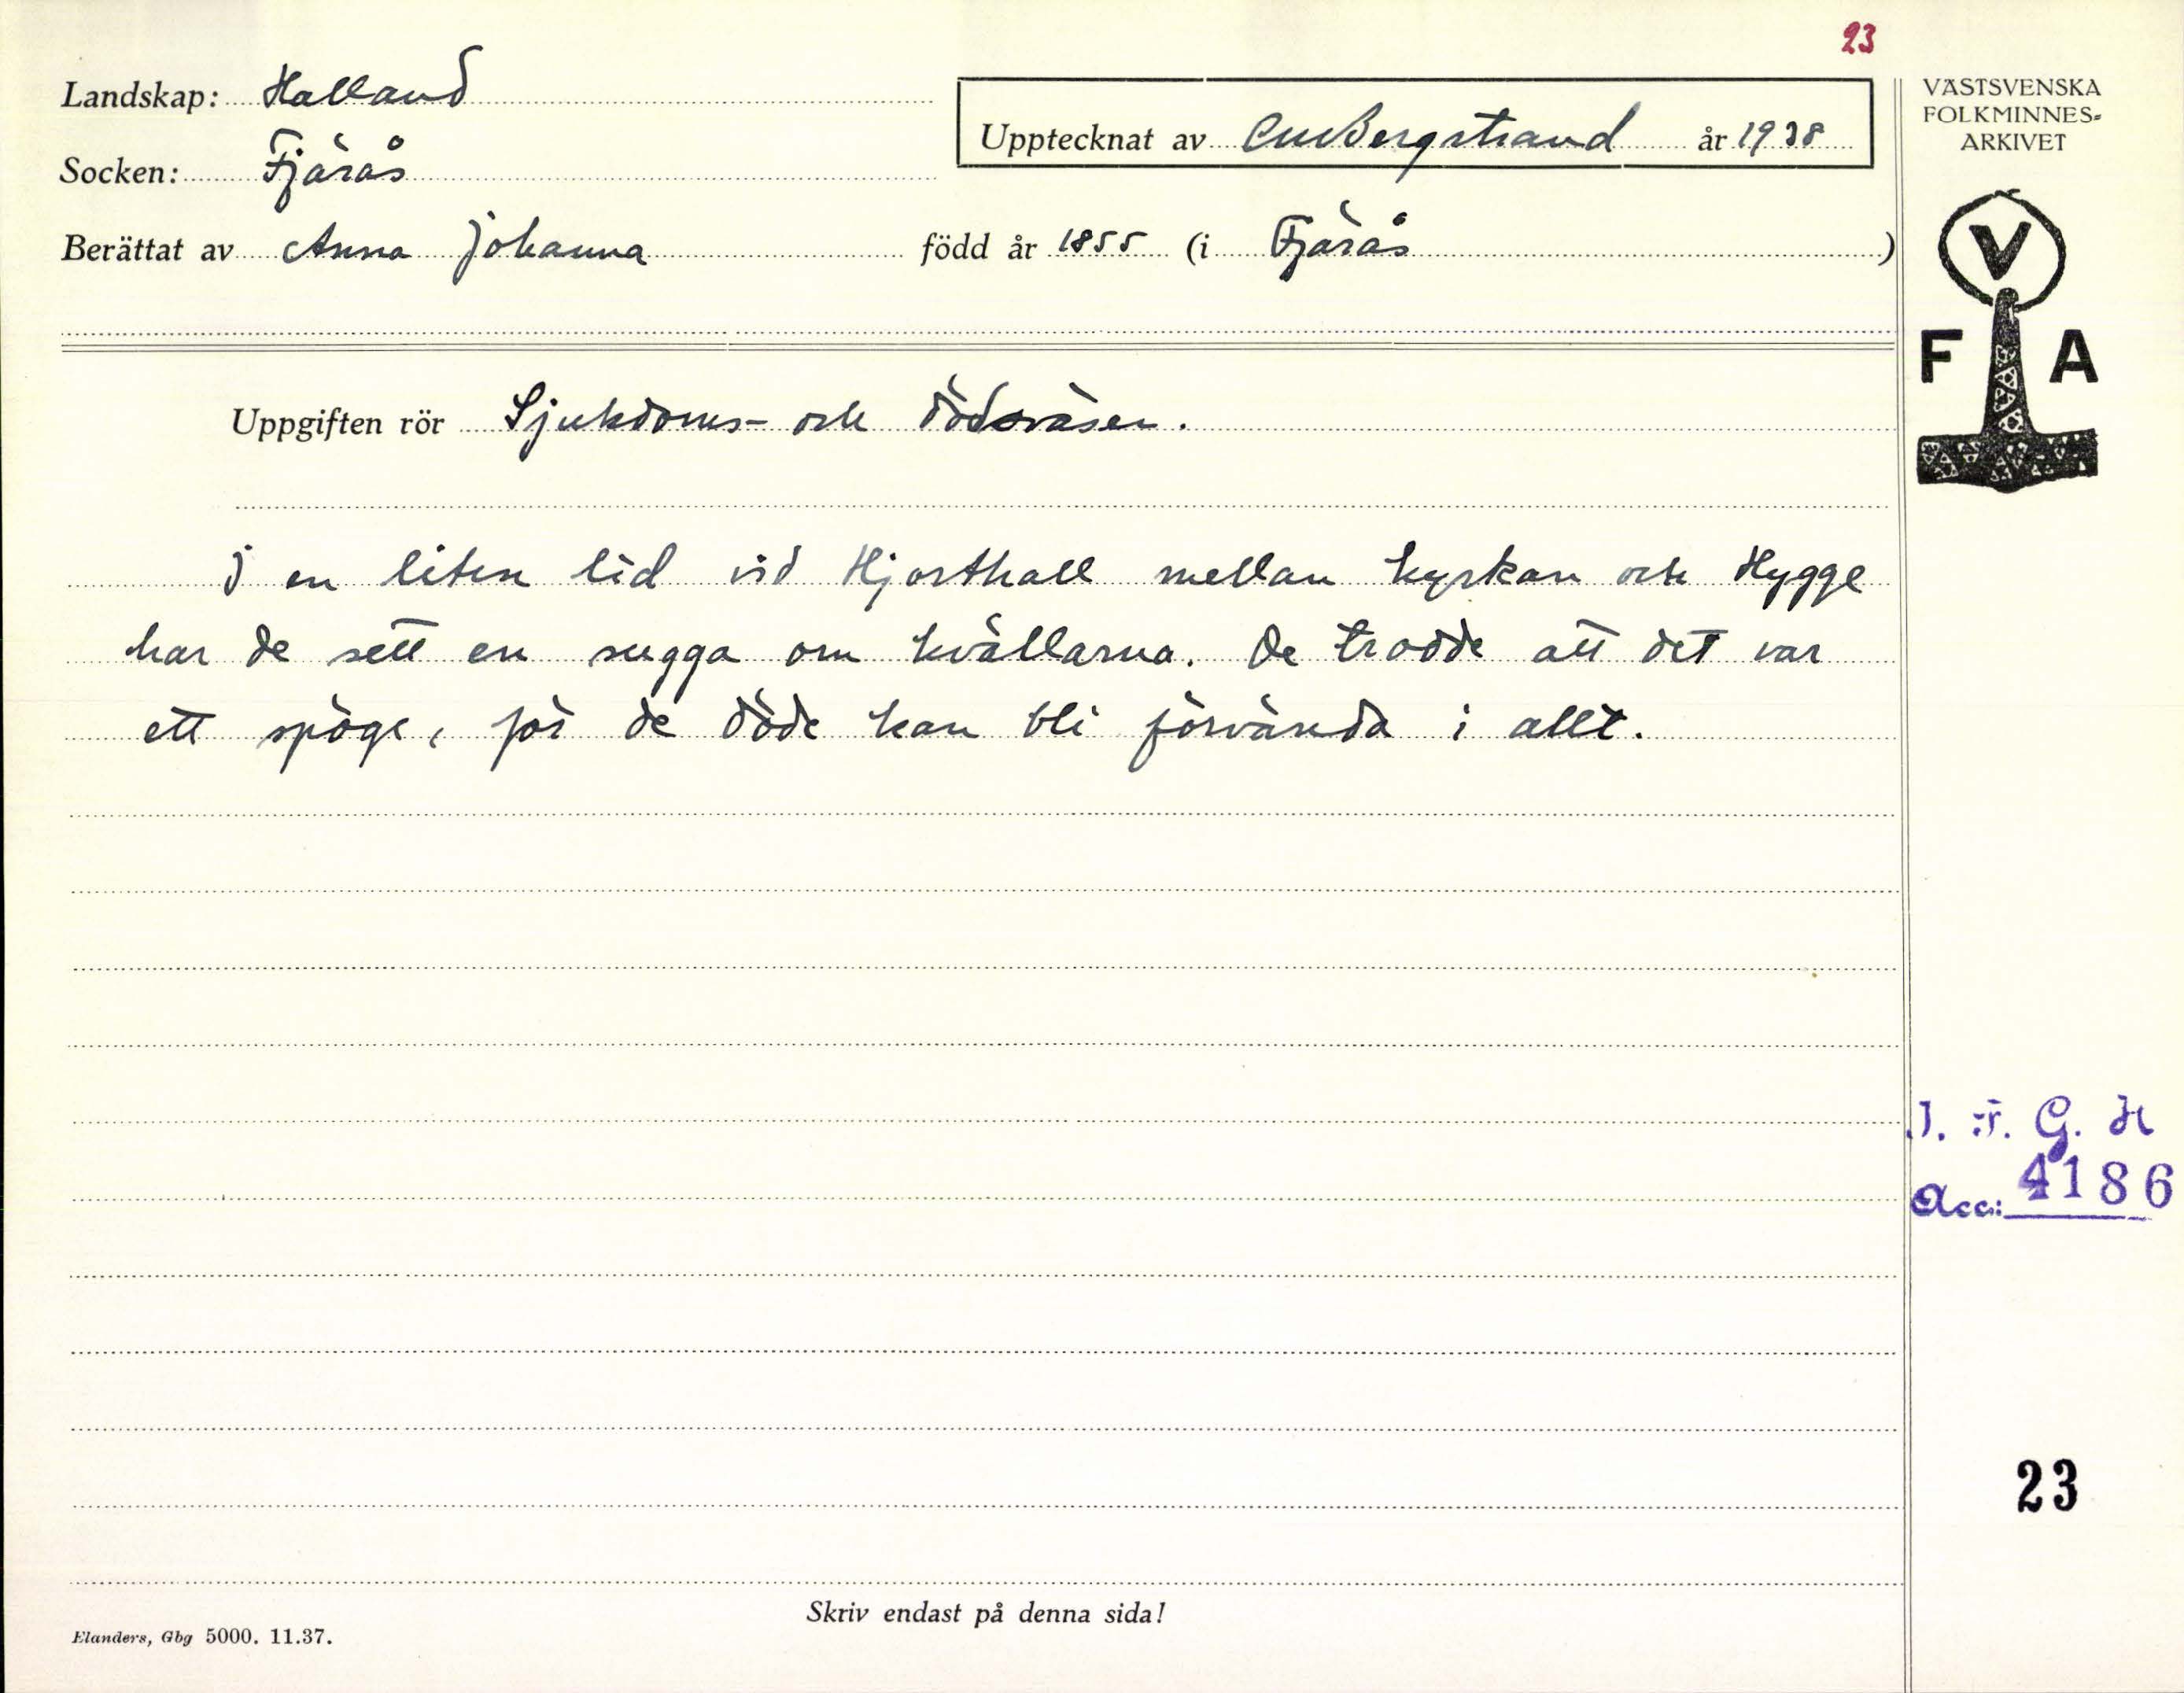 23
Landskap: Halland
Socken: Fjärås
Upptecknat av CMBergstrand år 1938
Berättat av Anna Johanna född år 1855 (i Fjärås)
VÄSTSVENSKA
FOLKMINNES-
ARKIVET
V
F A
Uppgiften rör Sjukdoms- och dödsväsen.
I en liten lid vid Hjorthall mellan kyrkan och Hygge
har de sett en sugga om kvällarna. De trodde att det var
ett spöge, för de döde kan bli förvända i allt.
I. F. G. H
Acc: 4186
23
Skriv endast på denna sida!
Elanders, Gbg 5000. 11.37.